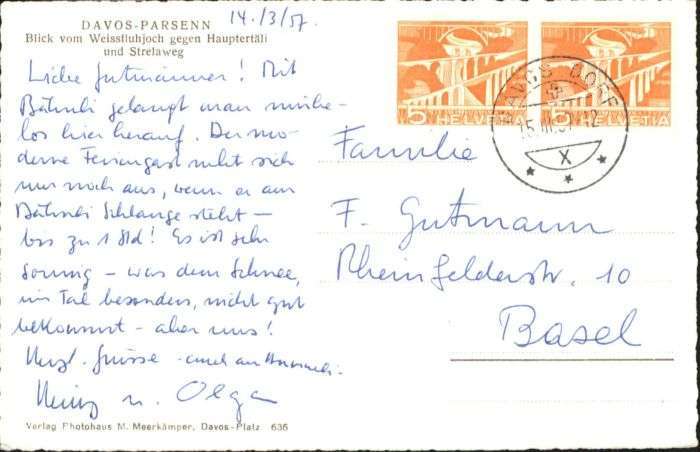 14./3/57.
DAVOS-PARSENN
Blick vom Weissfluhjoch gegen Hauptertäli
und Strelaweg
Liebe Gutmänner! Mit
Bähnli gelangt man mühe-
los hier herauf. Der mo-
derne Feriengast ruht sich
nur noch aus, wenn er am
Bähnli Schlange steht –
bis zu 1 Std! Es ist sehr
sonnig – was dem Schnee,
im Tal besonders, nicht gut
bekommt – aber uns!
Herzl. Grüsse - auch an
Heinz u. Olga
Verlag Photohaus M. Meerkämper, Davos-Platz 636
5 HELVETIA
5 HELVETIA
DAVOS DORF
15.III.57.12
X
Familie
F. Gutmann
Rheinfelderstr. 10
Basel